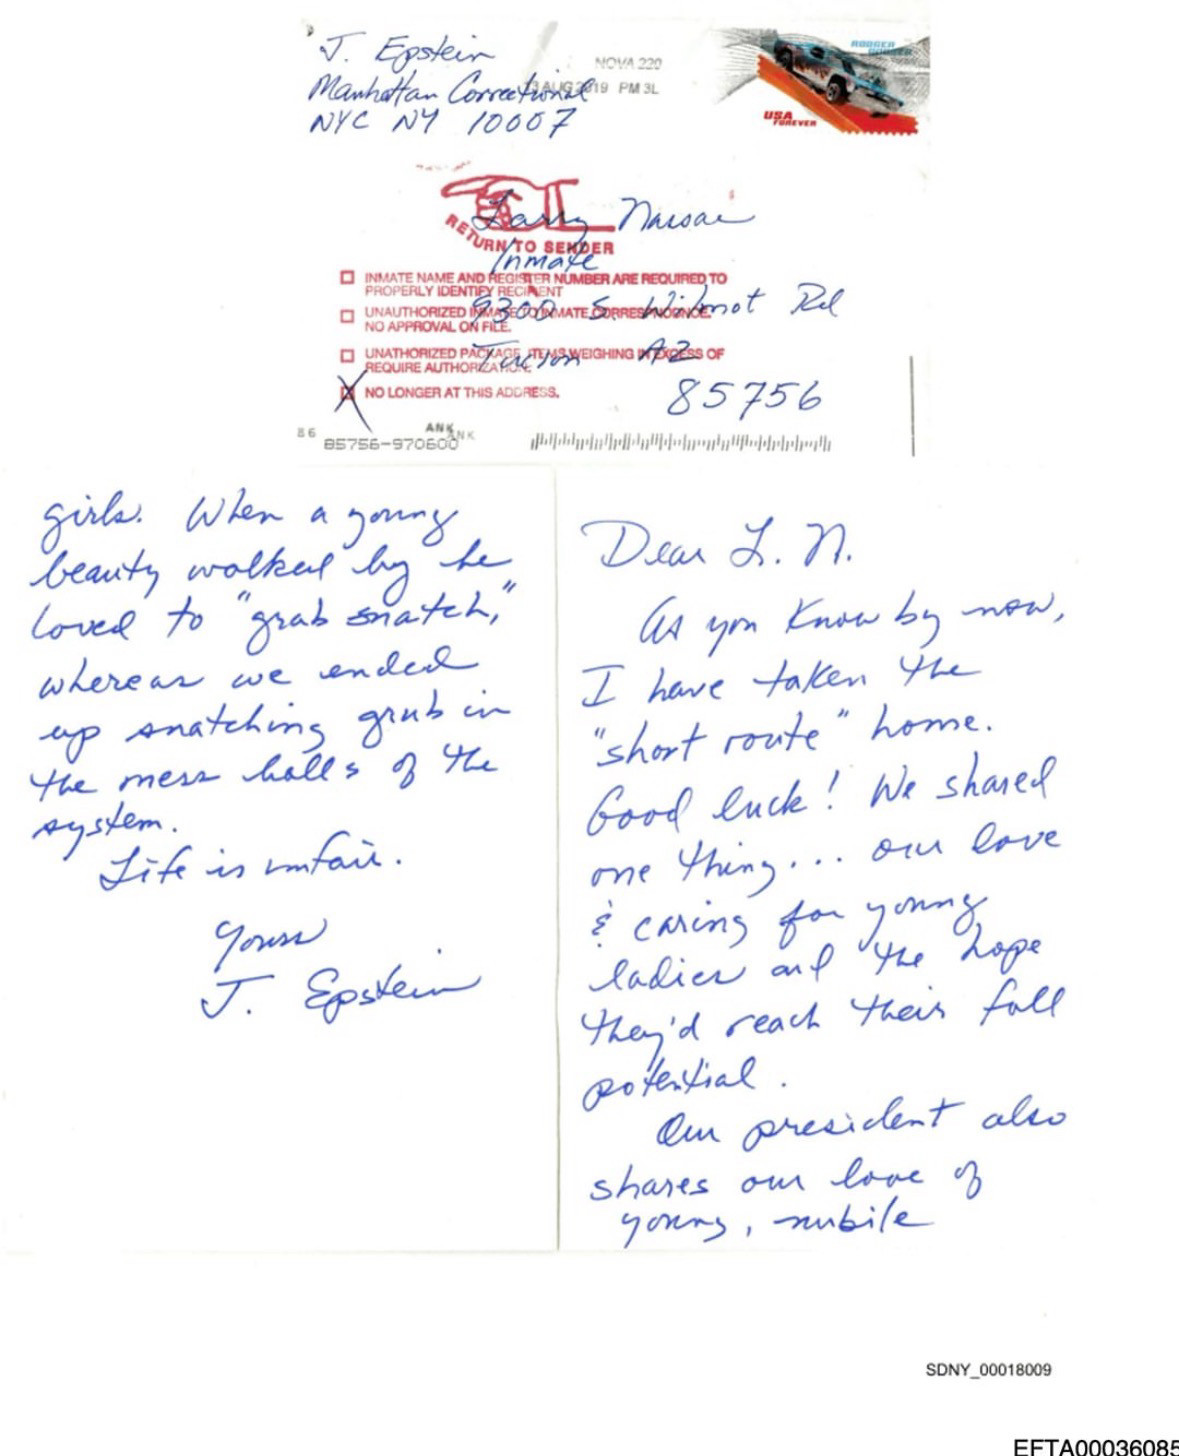 J. Epstein
Manhattan Correctional
NYC NY 10007
NOVA 220
13 AUG 2019 PM 3L
RODGER
USA
FOREVER
Larry Nassar
Inmate
9300 S. Wilmot Rd
Tucson AZ
85756
RETURN TO SENDER
INMATE NAME AND REGISTER NUMBER ARE REQUIRED TO
PROPERLY IDENTIFY RECIPIENT
UNAUTHORIZED INMATE TO INMATE CORRESPONDNCE.
NO APPROVAL ON FILE.
UNATHORIZED PACKAGE. ITEMS WEIGHING IN EXCESS OF
REQUIRE AUTHORIZATION.
X NO LONGER AT THIS ADDRESS.
86
ANK
ANK
85756-970600
Dear L. N.
As you know by now,
I have taken the
"short route" home.
Good luck! We shared
one thing... our love
& caring for young
ladies and the hope
they'd reach their full
potential.
Our president also
shares our love of
young, nubile
girls. When a young
beauty walked by he
loved to "grab snatch,"
whereas we ended
up snatching grub in
the mess halls of the
system.
Life is unfair.
Yours
J. Epstein
SDNY_00018009
EFTA00036085